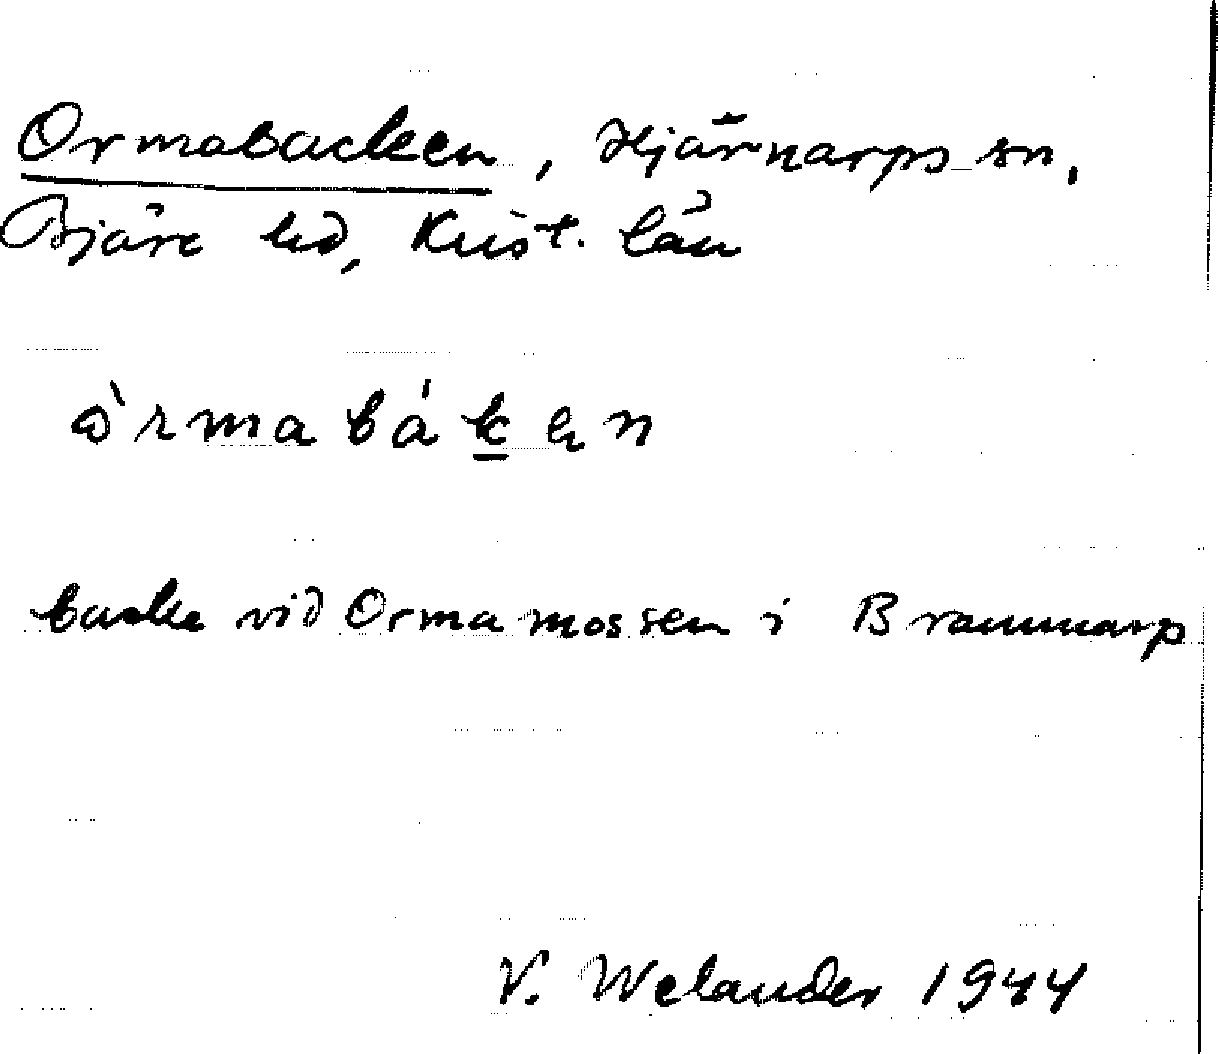 Ormabacken, Hjärnarps sn,
Bjäre hd, Krist. län
òrmabáken
backe vid Ormamossen i Brannarp
V. Welander 1944